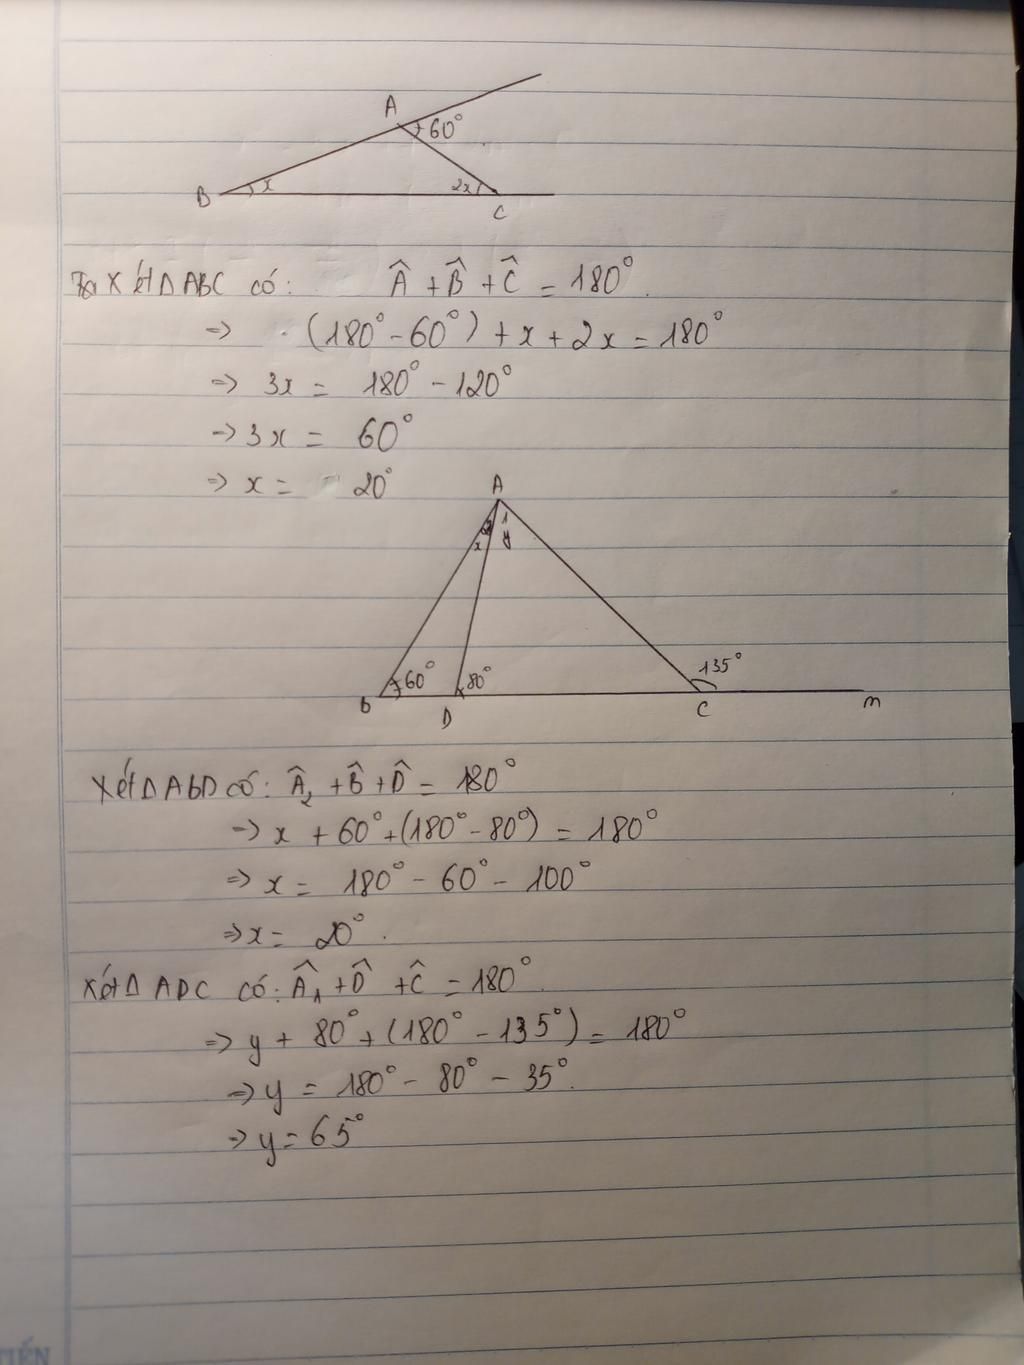 A
60°
B
x
2x
C
Xét Δ ABC có: Â + B̂ + Ĉ = 180°.
=> (180° - 60°) + x + 2x = 180°
=> 3x = 180° - 120°
=> 3x = 60°
=> x = 20°
A
2 1
x y
60°
80°
135°
B
D
C
m
Xét Δ ABD có: Â₂ + B̂ + D̂ = 180°
=> x + 60° + (180° - 80°) = 180°
=> x = 180° - 60° - 100°
=> x = 20°.
Xét Δ ADC có: Â₁ + D̂ + Ĉ = 180°.
=> y + 80° + (180° - 135°) = 180°
=> y = 180° - 80° - 35°.
=> y = 65°